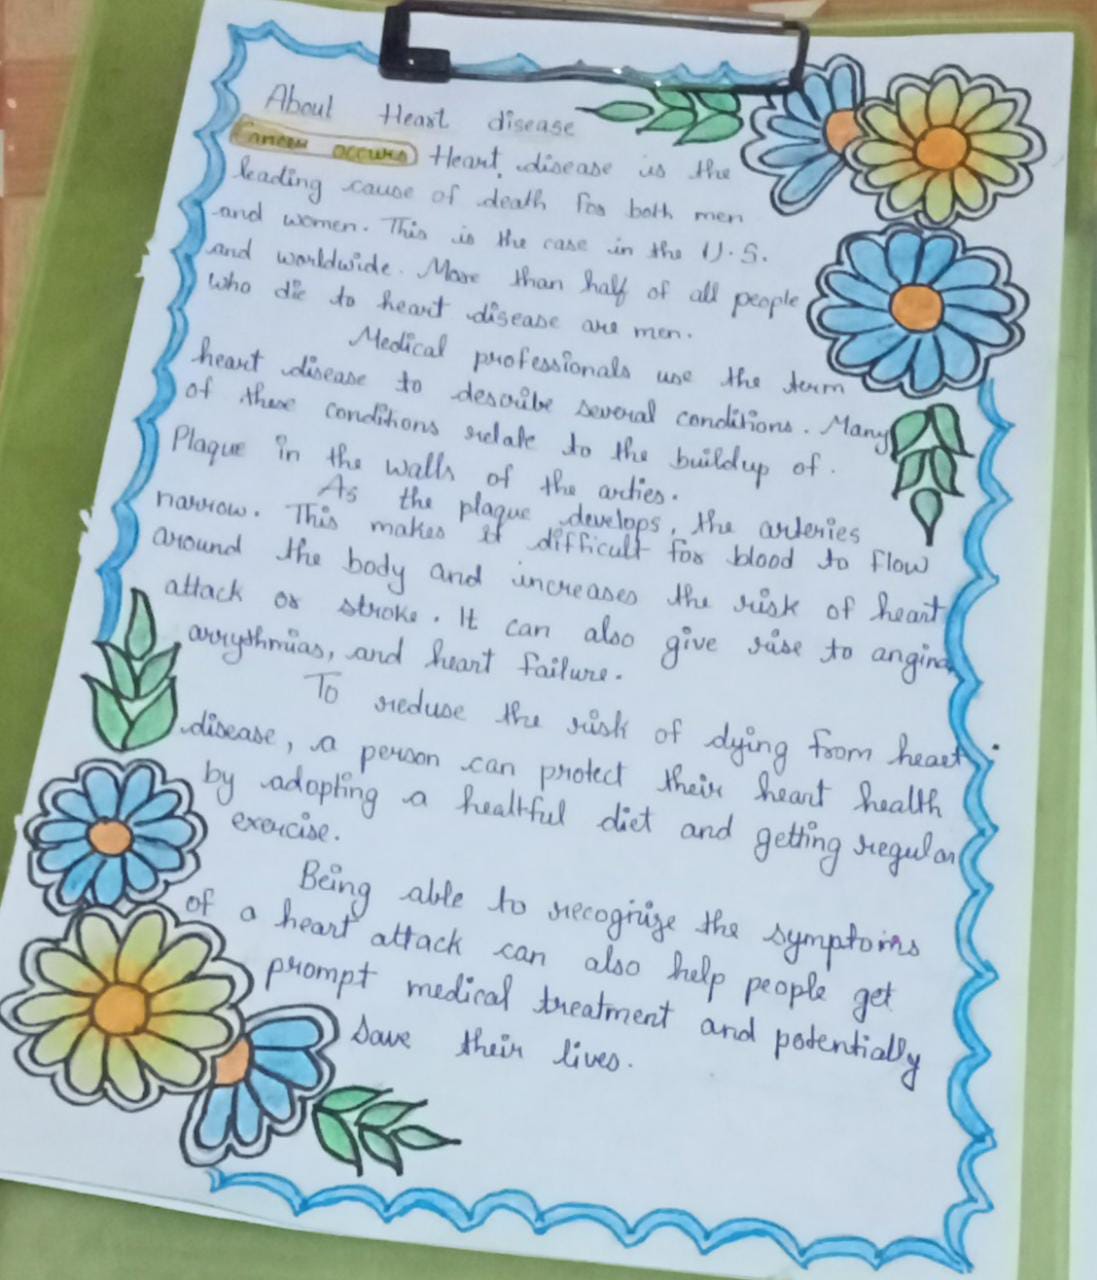 About Heart disease
Cancer occurs Heart disease is the
leading cause of death for both men
and women. This is the case in the U.S.
and worldwide. More than half of all people
who die to heart disease are men.
Medical professionals use the term
heart disease to describe several conditions. Many
of these conditions relate to the buildup of.
Plaque in the walls of the arties.
As the plaque develops, the arteries
narrow. This makes it difficult for blood to flow
around the body and increases the risk of heart
attack or stroke. It can also give rise to angina
arrythmias, and heart failure.
To reduse the risk of dying from heart
disease, a person can protect their heart health
by adopting a healtful diet and getting regular
exercise.
Being able to recognize the symptoms
of a heart attack can also help people get
prompt medical treatment and potentially
save their lives.